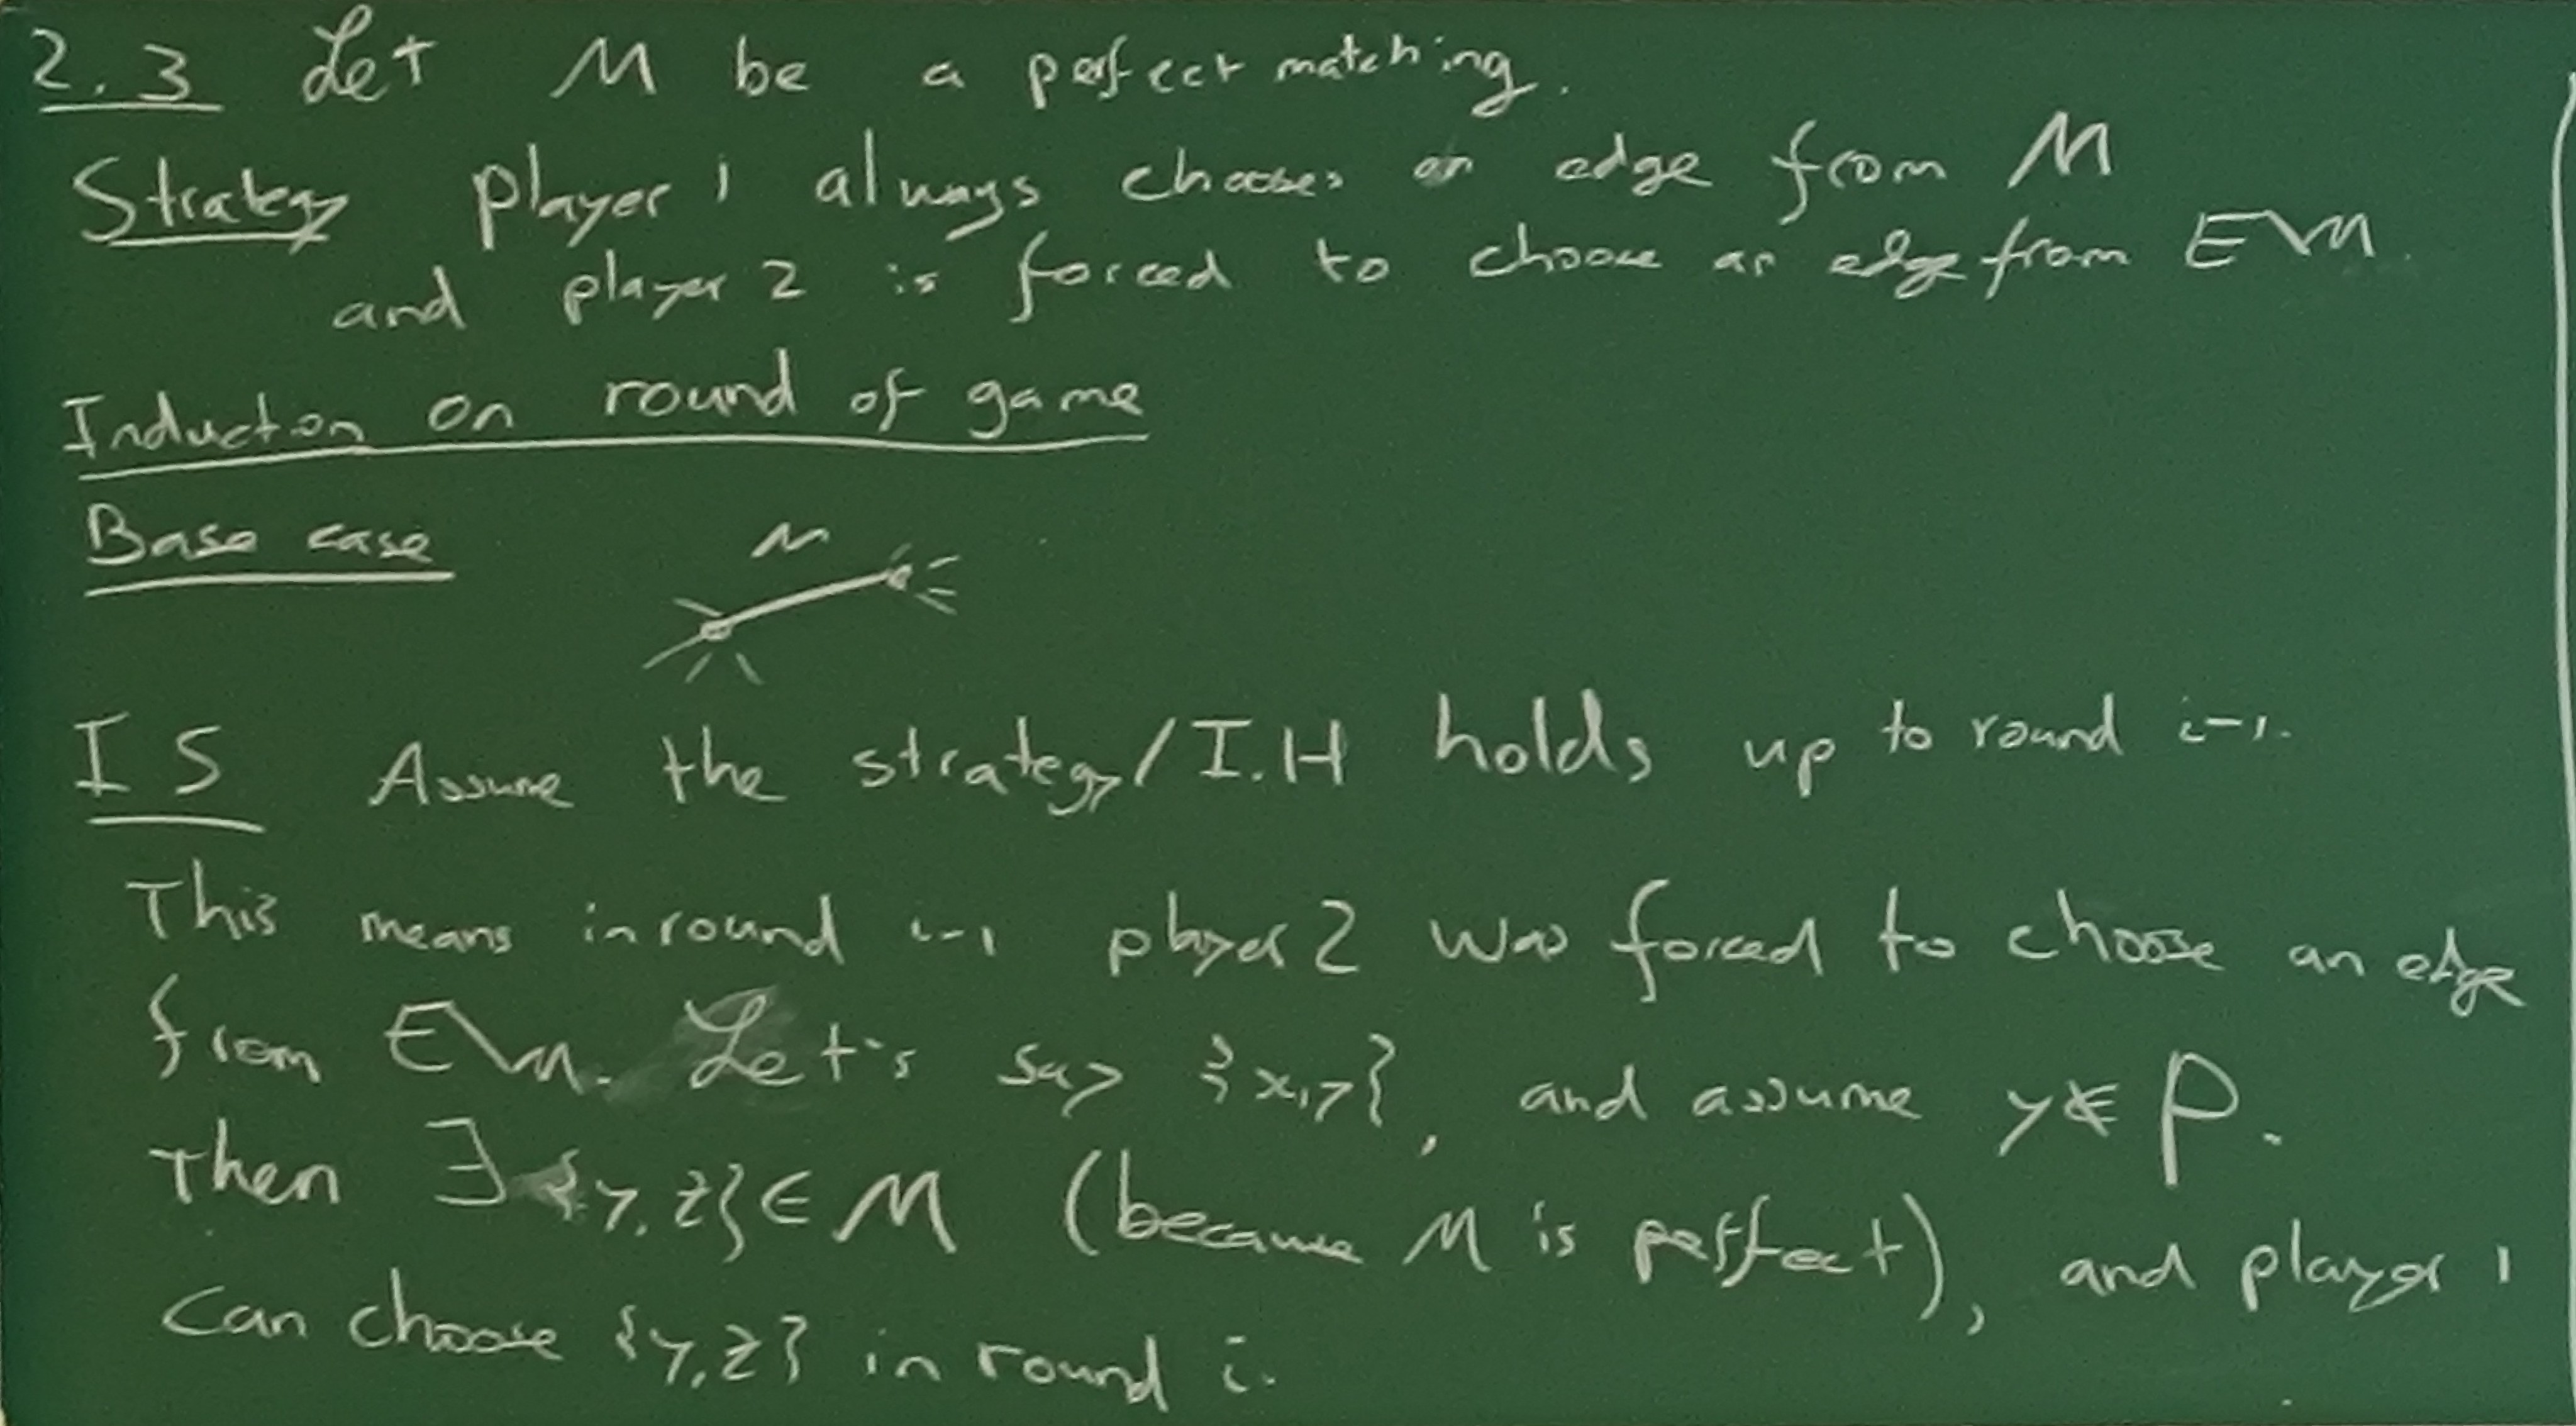 2.3 Let M be a perfect matching.
Strategy player 1 always chooses an edge from M
and player 2 is forced to choose an edge from E\M.
Induction on round of game
Base case
M
IS Assume the strategy/I.H holds up to round i-1.
This means in round i-1 player 2 was forced to choose an edge
from E\M. Let's say {x,y}, and assume y∉P.
Then ∃ {y,z}∈M (because M is perfect), and player 1
can choose {y,z} in round i.